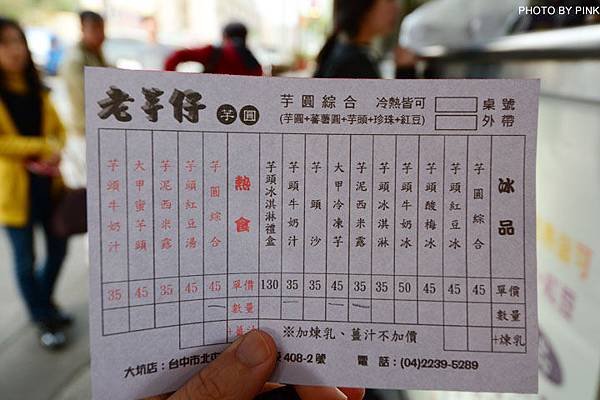 PHOTO BY PINK
老芋仔 芋圓
芋圓綜合 冷熱皆可
(芋圓+蕃薯圓+芋頭+珍珠+紅豆)
桌號
外帶
冰品
芋圓綜合
芋頭紅豆冰
芋頭酸梅冰
芋頭牛奶冰
芋頭冰淇淋
芋泥西米露
大甲冷凍芋
芋頭沙
芋頭牛奶汁
芋頭冰淇淋禮盒
熱食
芋圓綜合
芋頭紅豆湯
芋泥西米露
大甲蜜芋頭
芋頭牛奶汁
35 45 35 45 45 單價 130 35 35 45 35 35 50 45 45 45 單價
數量 數量
+薑汁 ※加煉乳、薑汁不加價 +煉乳
大坑店：台中市北 408-2號 電話：(04)2239-5289